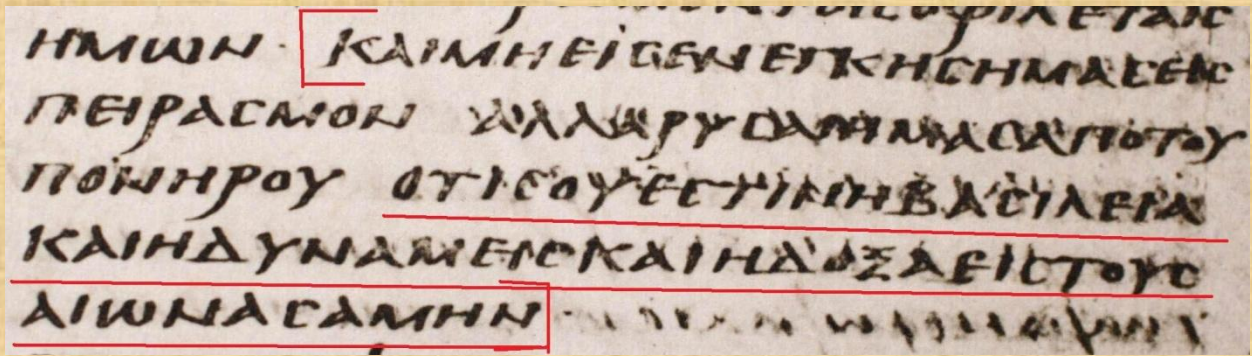 ΗΜΩΝ · ΚΑΙΜΗΕΙϹΕΝΕΓΚΗϹΗΜΑϹΕΙϹ
ΠΕΙΡΑϹΜΟΝ ΑΛΛΑΡΥϹΑΙΗΜΑϹΑΠΟΤΟΥ
ΠΟΝΗΡΟΥ ΟΤΙϹΟΥΕϹΤΙΝΗΒΑϹΙΛΕΙΑ
ΚΑΙΗΔΥΝΑΜΕΙϹΚΑΙΗΔΟΞΑΕΙϹΤΟΥϹ
ΑΙΩΝΑϹΑΜΗΝ